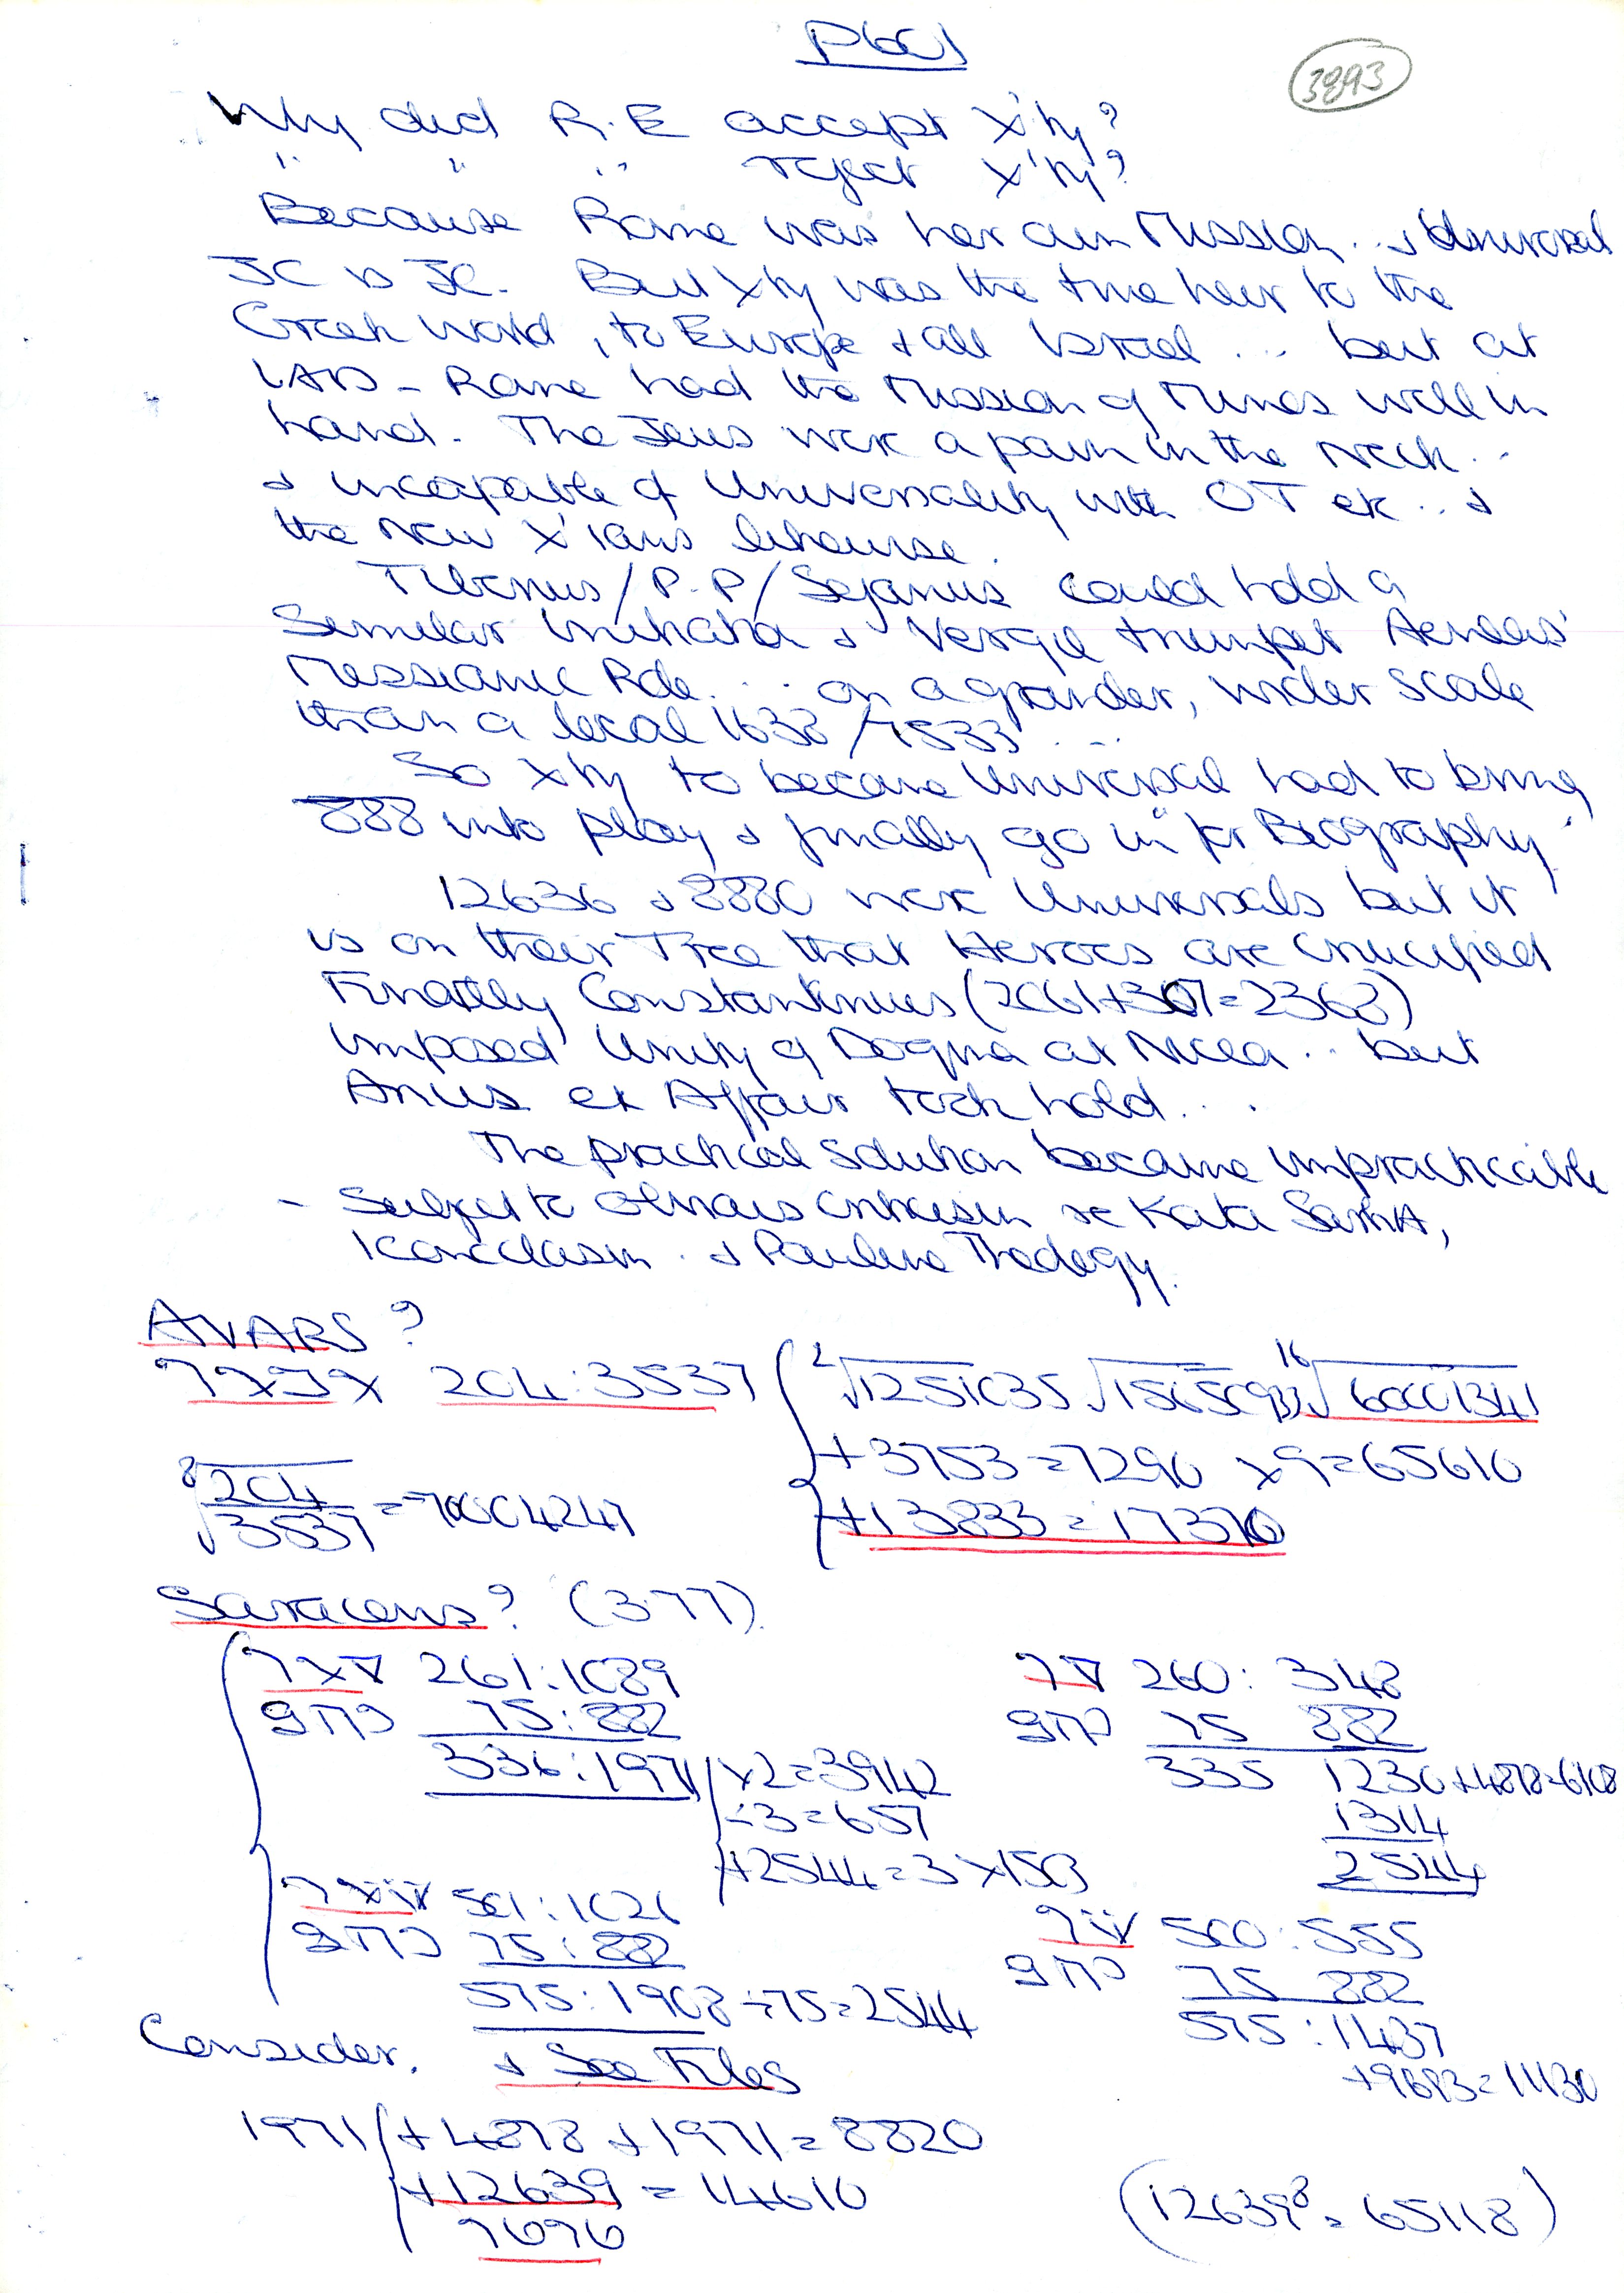 3893
Why did R.E accept X'ty?
" " " reject X'ty?
Because Rome was her own Mission .. & Universal
JC is JC. But Xty was the true heir to the
Greek World, to Europe + all Israel ... but at
1AD - Rome had the Mission of Minos well in
hand. The Jews were a pain in the Neck ..
& incapable of Universality with OT etc .. &
the New X'ians likewise.
Tiberius/P.P/Sejanus could hold a
Similar & Vergil trumpet Aeneas'
Messianic Role ... on a grander, wider scale
than a local 1638/7533 ...
So Xty to become Universal had to bring
888 into play & finally go in for Biography.
12636 & 8880 were Universals but it
is on their Tree that Heroes are crucified
Finally Constantinus (2061+307=2368)
imposed Unity of Dogma at Nicea .. but
Arius etc Affair took hold ...
The practical Solution became impracticable
- Subject to obvious criticism re Kata Sarka,
Iconoclasm . & Pauline Theology.
AVARS?
204:3537
√1251035 √1565093 16√60001341
+3753=7290 x9=65610
8√204/3537=70004247
+13833=17370
Saracens? (3.77)
261:1089 260:348
75:882 75 882
336:1971 x2=3942 335 1230+4878=6108
÷3=657 1314
+2544=3x1503 2544
501:1026 500:555
75:882 75 882
575:1908÷75=2544 575:1437
Consider. & See Files
+9693=11130
1971 +4878+1971=8820
+12639=14610
9696
(12639⁸=65118)